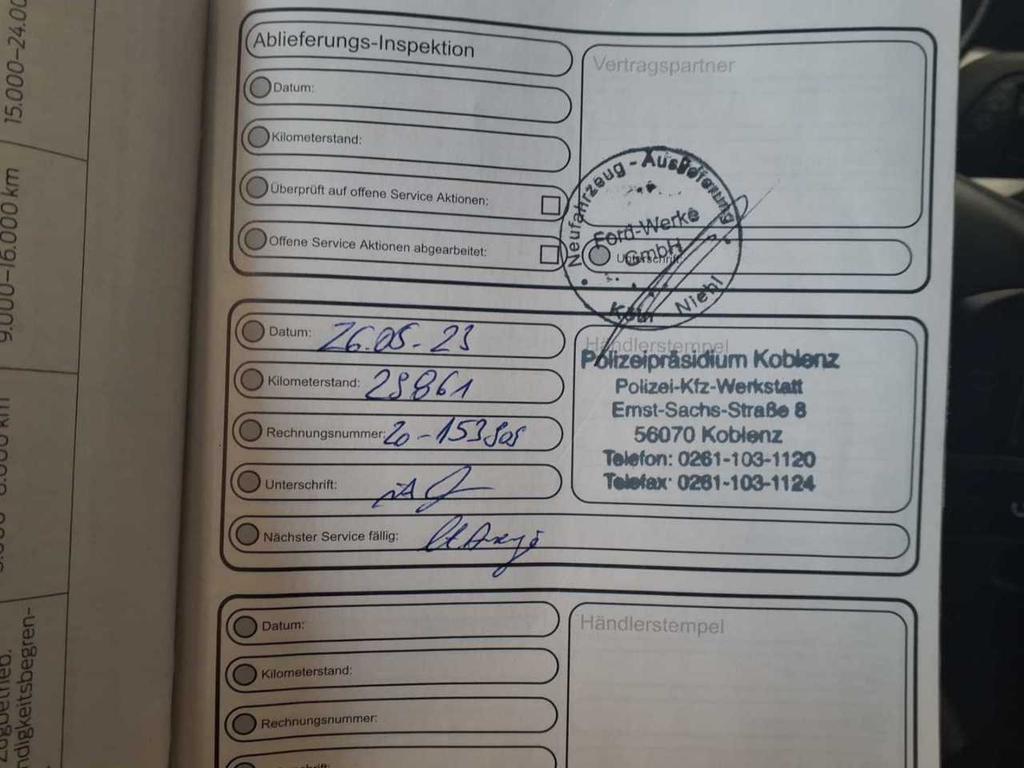 15.000–24.00
9.000–16.000 km
ndigkeitsbegren-
Ablieferungs-Inspektion
Vertragspartner
Datum:
Kilometerstand:
Überprüft auf offene Service Aktionen:
Offene Service Aktionen abgearbeitet:
Neufahrzeug - Auslieferung
Ford-Werke
GmbH
Unterschrift
Köln Niehl
Datum: 26.05.23
Kilometerstand:
Rechnungsnummer:
Unterschrift:
Nächster Service fällig:
Händlerstempel
Polizeipräsidium Koblenz
Polizei-Kfz-Werkstatt
Ernst-Sachs-Straße 8
56070 Koblenz
Telefon: 0261-103-1120
Telefax: 0261-103-1124
Datum:
Kilometerstand:
Rechnungsnummer:
Händlerstempel